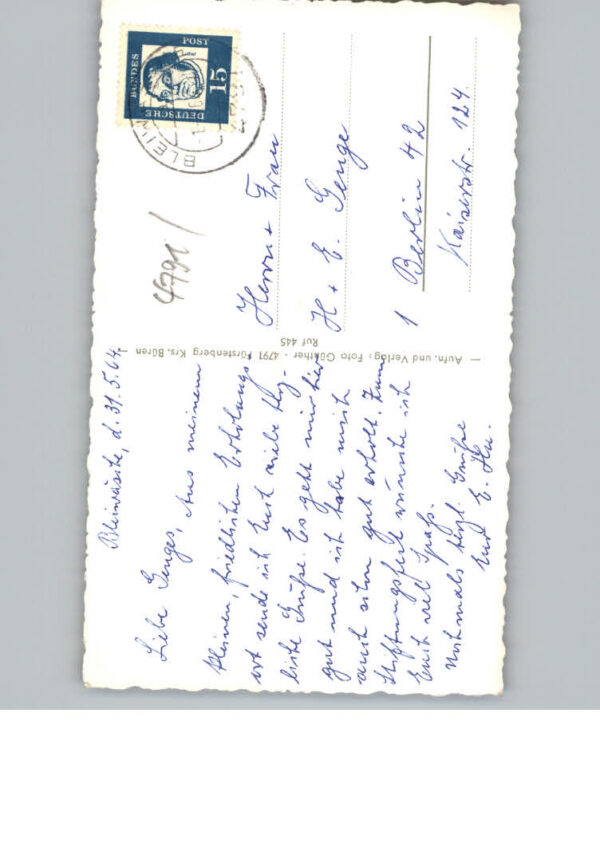 Bleiwäsche, d. 31.5.64.
Liebe Genges, Aus meinem
kleinen, friedlichen Erholungs-
ort sende ich Euch viele herz-
liche Grüße. Es geht mir hier
gut und ich habe mich
auch schon gut erholt. Zum
Stiftungsfest wünsche ich
Euch viel Spaß.
Nochmals herzl. Grüße
Eur E.
Aufn. und Verlag: Foto Günther · 4791 Fürstenberg Krs. Büren
Ruf 445
DEUTSCHE
BUNDES
POST
15
BLEIW
4791
Herrn + Frau
H + E. Genge
1 Berlin 42
Kaiserstr. 124.